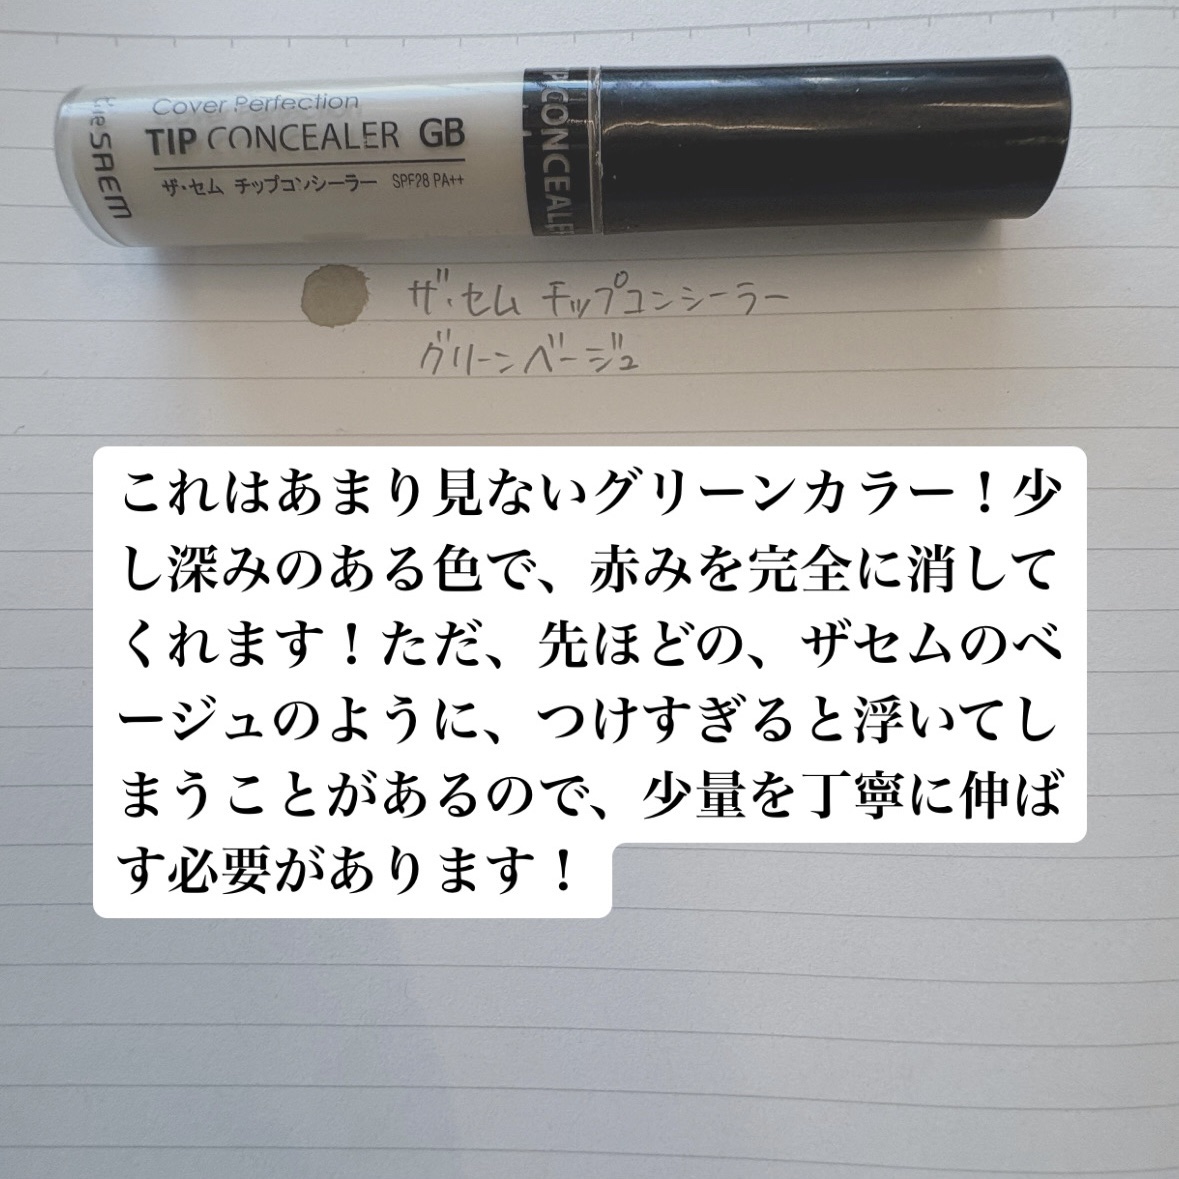 the SAEM
Cover Perfection
TIP CONCEALER GB
ザ・セム チップコンシーラー SPF28 PA++
P CONCEALER
ザ・セム チップコンシーラー
グリーンベージュ
これはあまり見ないグリーンカラー！少
し深みのある色で、赤みを完全に消して
くれます！ただ、先ほどの、ザセムのベ
ージュのように、つけすぎると浮いてし
まうことがあるので、少量を丁寧に伸ば
す必要があります！